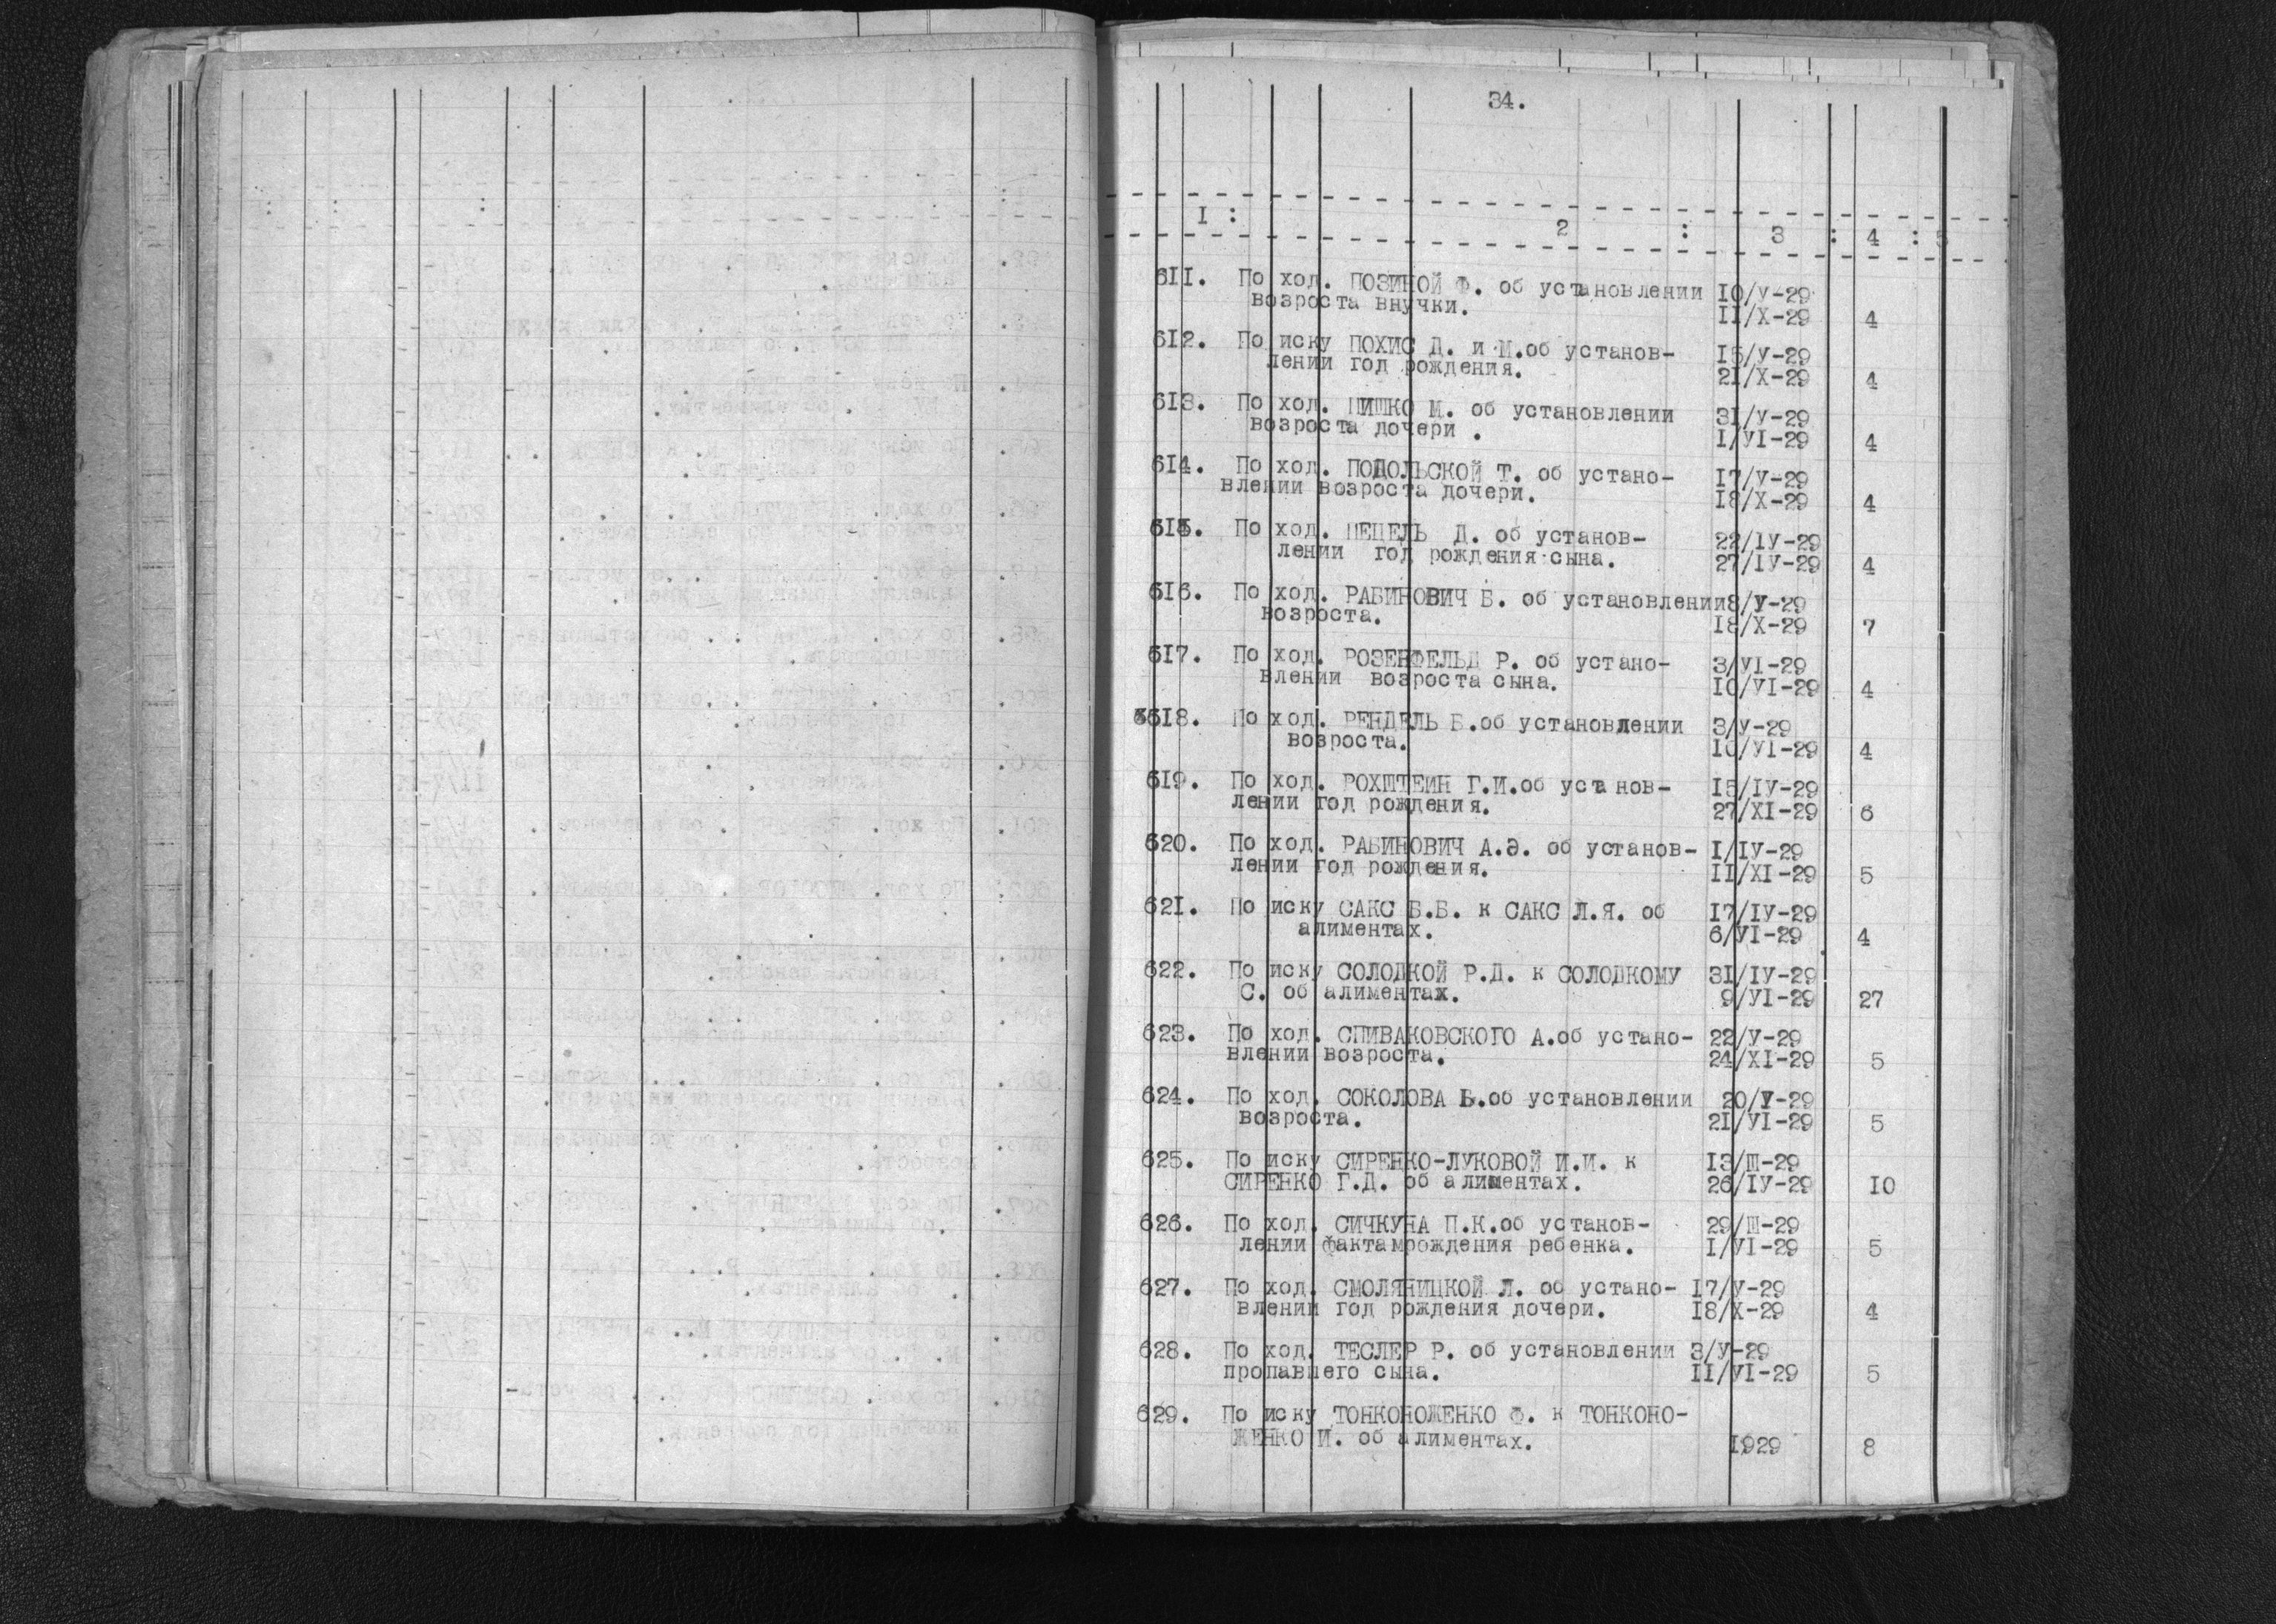 34.
1 : 2 : 3 : 4 : 5
611. По ход. ПОЗИНОЙ Ф. об установлении 10/У-29
возроста внучки. 11/Х-29 4
612. По иску ПОХИС Д. и М.об установ- 15/У-29
лении год рождения. 21/Х-29 4
613. По ход. ПИШКО М. об установлении 31/У-29
возроста дочери . I/УІ-29 4
614. По ход. ПОДОЛЬСКОЙ Т. об устано- 17/У-29
влении возроста дочери. 18/Х-29 4
615. По ход. ПЕЦЕЛЬ Д. об установ- 22/ІУ-29
лении год рождения сына. 27/ІУ-29 4
616. По ход. РАБИНОВИЧ Б. об установлении 8/У-29
возроста. 18/Х-29 7
617. По ход. РОЗЕНФЕЛЬД Р. об устано- 3/УІ-29
влении возроста сына. 10/УІ-29 4
618. По ход. РЕНДЕЛЬ Б.об установлении 3/У-29
возроста. 10/УІ-29 4
619. По ход. РОХШТЕИН Г.И.об установ- 15/ІУ-29
лении год рождения. 27/ХІ-29 6
620. По ход. РАБИНОВИЧ А.Э. об установ- I/ІУ-29
лении год рождения. 11/ХІ-29 5
621. По иску САКС Б.Б. к САКС Л.Я. об 17/ІУ-29
алиментах. 6/УІ-29 4
622. По иску СОЛОДКОЙ Р.Д. к СОЛОДКОМУ 31/ІУ-29
С. об алиментах. 9/УІ-29 27
623. По ход. СПИВАКОВСКОГО А.об устано- 22/У-29
влении возроста. 24/ХІ-29 5
624. По ход. СОКОЛОВА Б.об установлении 20/У-29
возроста. 21/УІ-29 5
625. По иску СИРЕНКО-ЛУКОВОЙ И.И. к 13/Ш-29
СИРЕНКО Г.Д. об алиментах. 26/ІУ-29 10
626. По ход. СИЧКУНА П.К.об установ- 29/Ш-29
лении фактамрождения ребенка. I/УІ-29 5
627. По ход. СМОЛЯНИЦКОЙ Л. об устано- 17/У-29
влении год рождения дочери. 18/Х-29 4
628. По ход. ТЕСЛЕР Р. об установлении 3/У-29
пропавшего сына. 11/УІ-29 5
629. По иску ТОНКОНОЖЕНКО Ф. к ТОНКОНО-
ЖЕНКО И. об алиментах. 1929 8